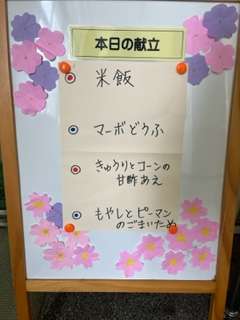 本日の献立
米飯
マーボどうふ
きゅうりとコーンの
甘酢あえ
もやしとピーマン
のごまいため